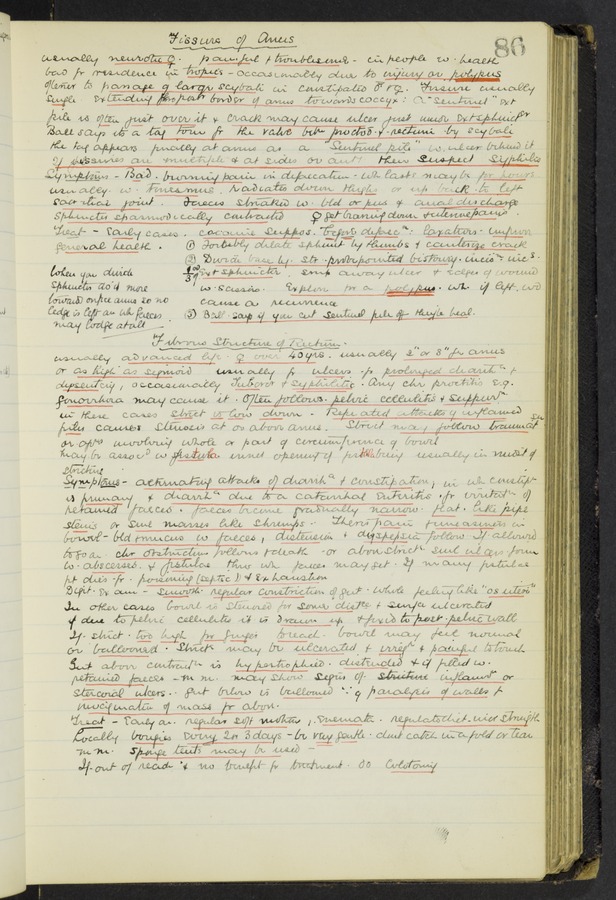 Fissure of Anus
86
usually neurotic ♀. painful & troublesome - in people w. health
bad fr residence in tropics - occasionally due to injury or polypus
oftener to passage of large scybali in constipated
single extending post border of anus towards coccyx: a "sentinel" ext
pile is often just over it & crack may cause ulcer just inside ext sphincter
Ball says its a tag torn fr the valve betw proctod. & rectum by scybali
the tag appears finally at anus as a "Sentinel pile" w. ulcer behind it
If fissures are multiple & at sides or ant then suspect Syphilis
Symptoms - Bad. burning pain in defaecation - wh lasts maybe for hours
usually w. tenesmus. radiates down thighs or up back to left
sacroiliac joint. Faeces streaked w. bld or pus & anal discharge
sphincter spasmodically contracted ♀ get bearing down & uterine pains
Treat - Early cases. cocaine suppos. before defaec: laxatives. improve
general health. ① Forcibly dilate sphinct by thumbs & cauterize crack
② Divide base by str. probepointed bistoury. incis
When you divide
sphincter do it more
toward one side so no
ledge is left on wh faeces
may lodge at all
ext sphincter. snip away ulcer & edges of wound
w. scissors. Explore for a polypus. wh if left, wd
cause a recurrence
③ Ball says if you cut sentinel pile off theyll heal.
Fibrous Stricture of Rectum.
usually advanced life. ♀ over 40 yrs. usually 2" or 3" fr anus
or as high as sigmoid usually fr ulcers fr prolonged diarrh &
dysentery, occasionally Tubercr & syphilitic. Any chr proctitis e.g.
gonorrhoea may cause it. Often follows pelvic cellulitis & suppurn
in these cases strict is low down. Repeated attacks of inflamed
piles causes stenosis at or above anus. Strict may follow traumat
or opns involving whole or part of circumference of bowel
may be assocd w fistula inner opening of fistula being usually in midst of
stricture
Symptoms - alternating attacks of diarrha & constipation, in wh constipn
is primary & diarrha due to a catarrhal Enteritis fr irritatn of
retained faeces. faeces become gradually narrow. flat. like pipe
stems or small masses like shrimps. There's pain & uneasiness in
bowel - bld & mucus in faeces, distension & dyspepsia follow. If allowed
to go on chr obstruction follows & death. or above strict small ulcers form
w. abscesses. & fistulas thro wh faeces may get. If many fistulas
pt dies fr. poisoning (septic) & Exhaustion
Digit. Exam - smooth regular constriction of gut. whole feeling like "os uteri"
In other cases bowel is stenosed for some distce & surface ulcerated
if due to pelvic cellulitis it is drawn up & fixed to post pelvic wall
If strict. too high for finger reach. bowel may feel normal
or ballooned. Strict may be ulcerated & irreg & painful to touch
Gut above contractn is hypertrophied. distended & if filled w.
retained faeces - m.m. may show signs of stricture inflamd or
stercoral ulcers. Gut below is ballooned ∵ of paralysis of walls &
invagination of mass fr above.
Treat - Early on. regular soft motions, Enemata. regulate diet. incr strength
Locally bougies every 2 or 3 days - be very gentle. dont catch in a fold or tear
m.m. Sponge tents may be used -
If out of reach & no benefit fr treatment. do Colotomy